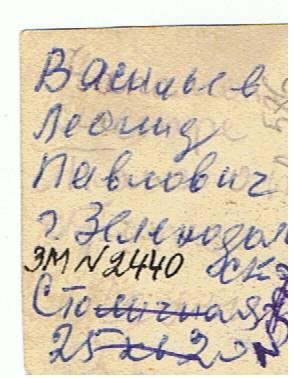 Васильев
Леонид
Павлович
г. Зеленодоль
ск
ЗМ N 2440
Столичная
25 кв 20